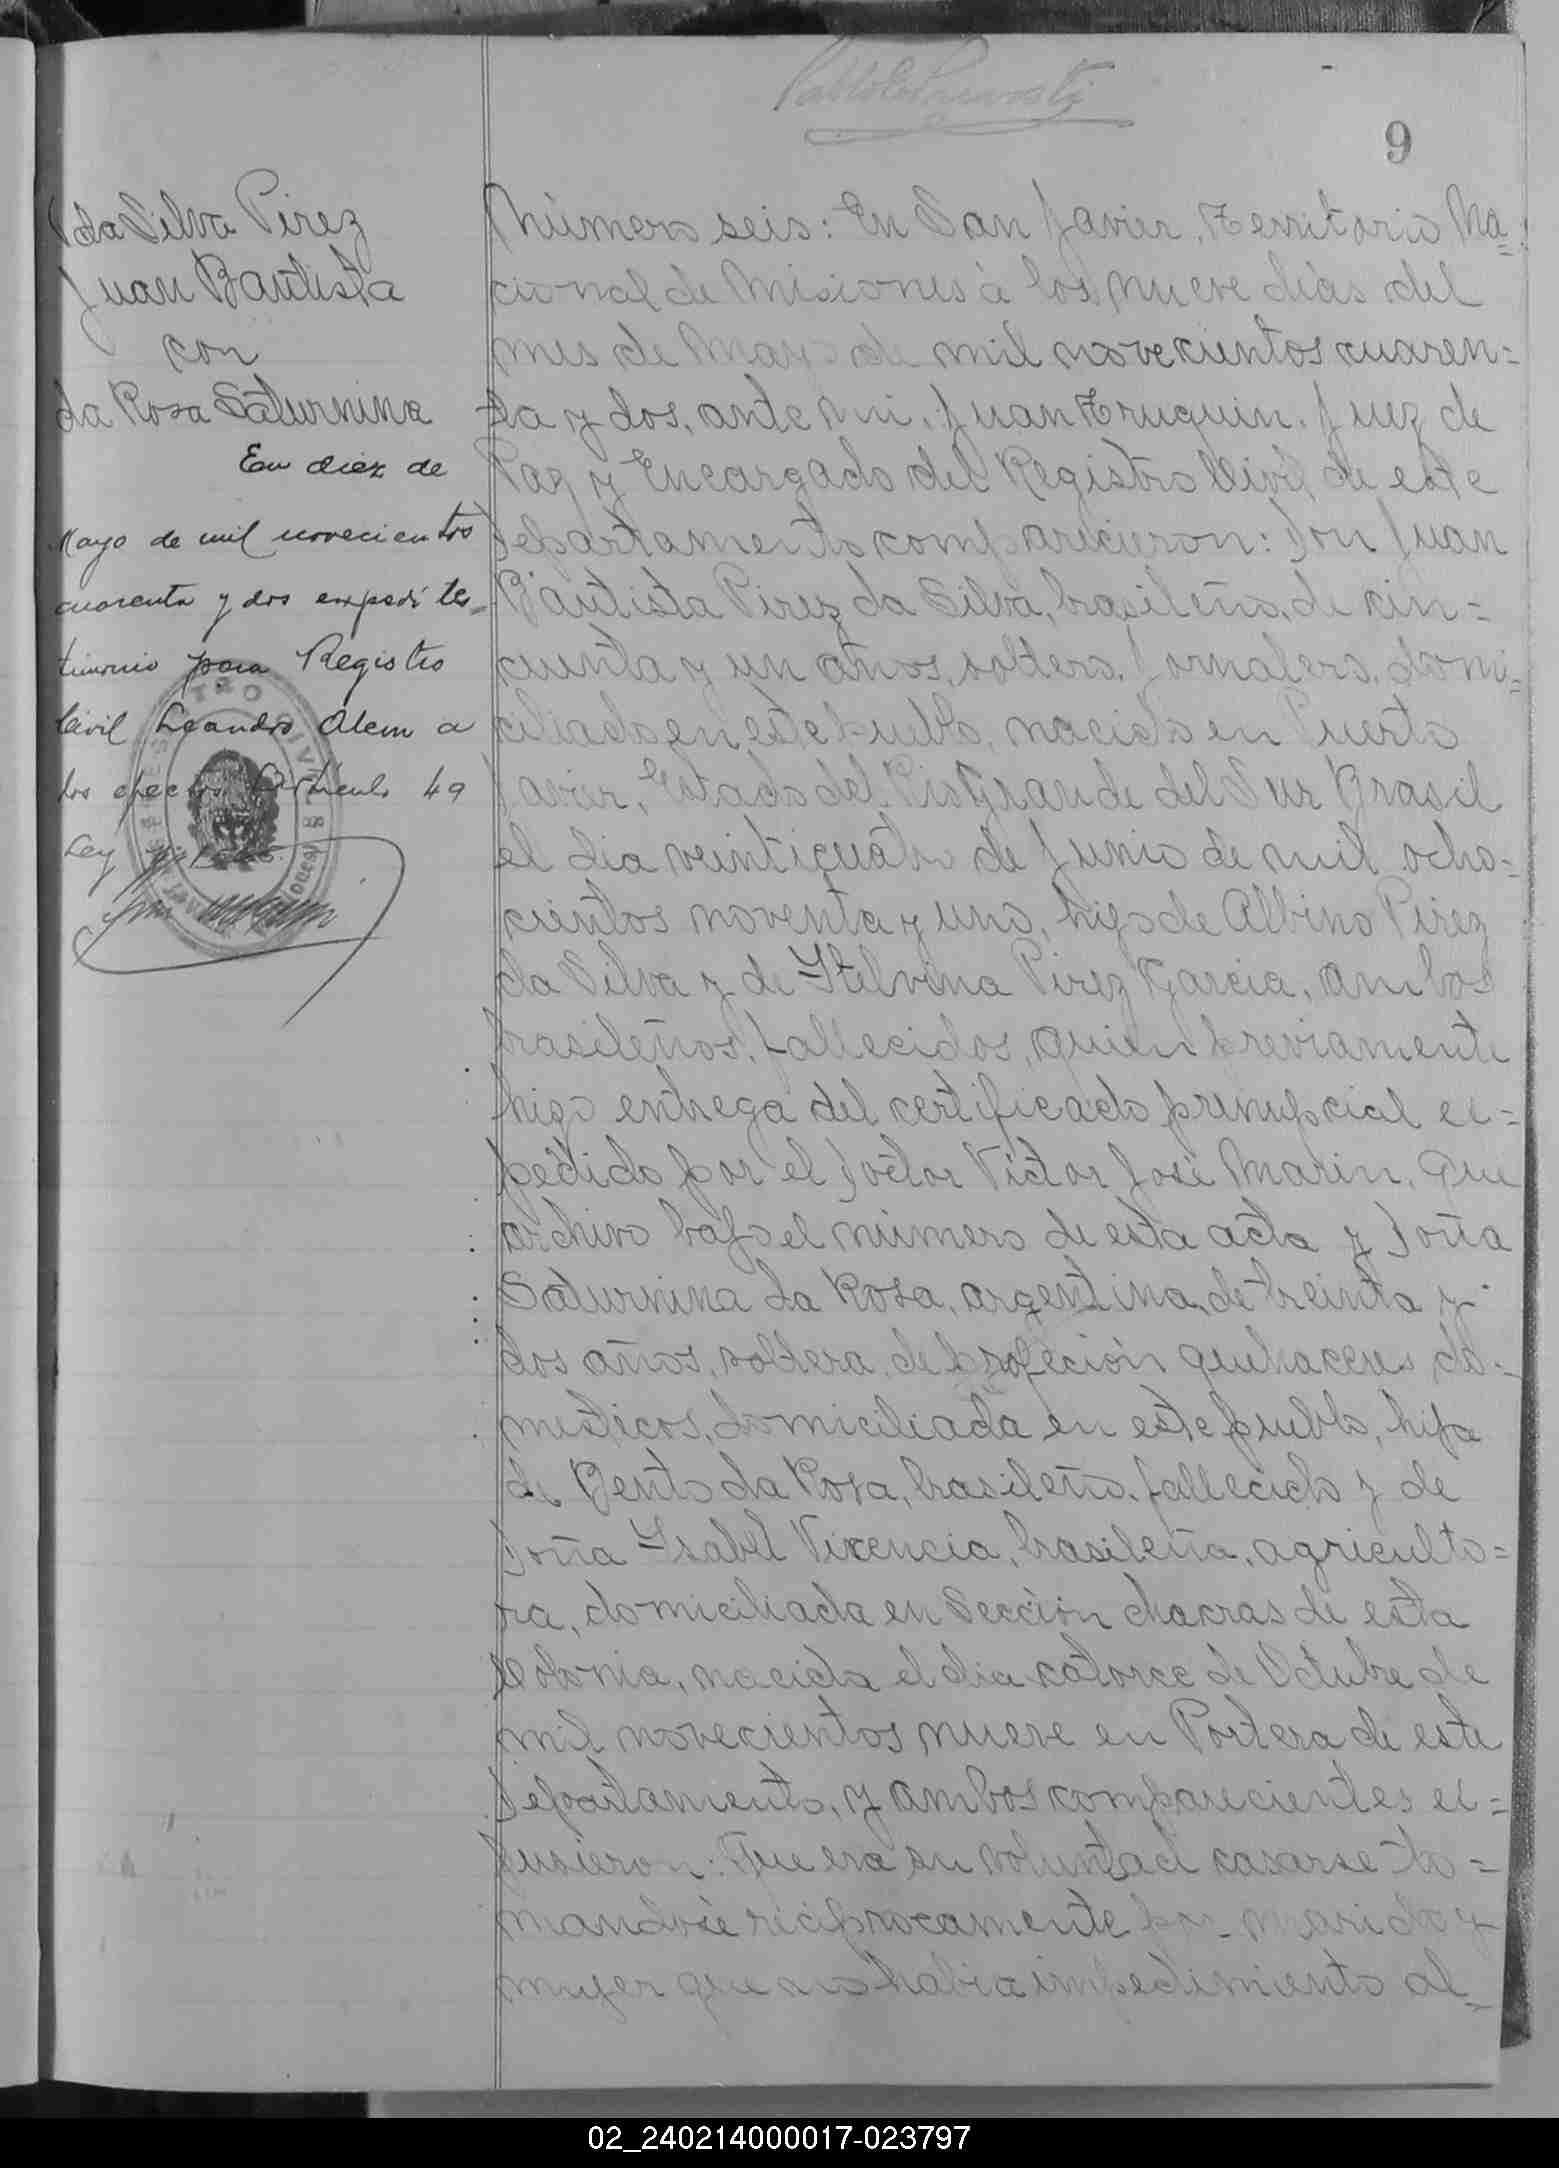 9
da Silva Pirez
Juan Bautista
con
da Rosa Saturnina
En diez de
Mayo de mil novecientos
cuarenta y dos expedí tes=
timonio para Registro
Civil Leandro Alem a
los efectos Artículo 49
Ley
Número seis: En San Javier, Territorio Na=
cional de Misiones á los nueve días del
mes de Mayo de mil novecientos cuaren=
ta y dos, ante mi, Juan Truquin, Juez de
Paz y Encargado del Registro Civil de este
Departamento comparicieron: Don Juan
Bautista Pirez da Silva, brasileño, de cin=
cuenta y un años, soltero, Jornalero, domi=
ciliado en este Pueblo, nacido en Puerto
Javier, Estado del Rio Grande del Sur Brasil
el dia veinticuatro de Junio de mil ocho=
cientos noventa y uno, hijo de Albino Pirez
da Silva y de Itelvina Pirez Garcia, ambos
brasileños, fallecidos, quien previamente
hizo entrega del certificado prenupcial ex=
pedido por el Doctor Victor José Marin, que
archivo bajo el número de esta acta y Doña
Saturnina da Rosa, argentina, de treinta y
dos años, soltera, de profeción quehaceres do=
mesticos, domiciliada en este pueblo, hija
de Bento da Rosa, brasileño, fallecido y de
Doña Isabel Vicencia, brasileña, agriculto=
ra, domiciliada en Sección chacras de esta
Colonia, nacida el dia catorce de Octubre de
mil novecientos nueve en Portera de este
Departamento, y ambos comparecientes ex=
pusieron: Que era su voluntad casarse to=
mandose reciprocamente por marido y
mujer que no habia impedimento al=
02_240214000017-023797